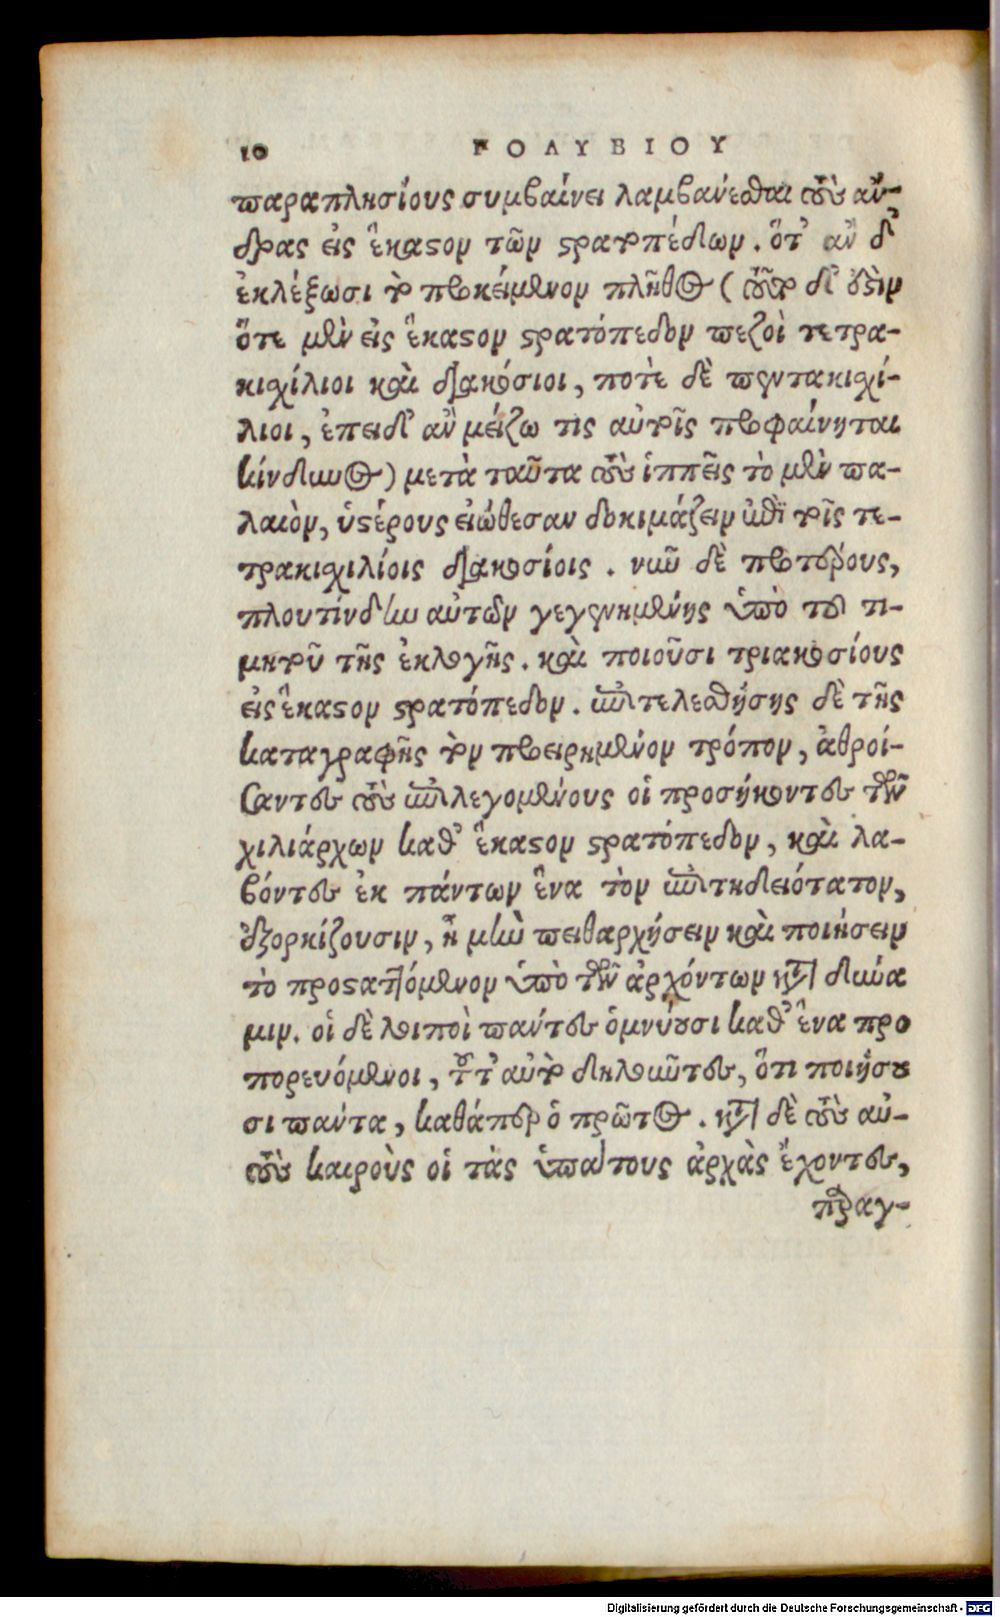 10 ΠΟΛΥΒΙΟΥ
παραπλησίους συμβαίνει λαμβάνεσθαι τοὺς ἄν-
δρας εἰς ἕκαστον τῶν στρατοπέδων. ὅτ' ἂν δ'
ἐκλέξωσι τὸ προκείμενον πλῆθος (τοῦτο δ' ὁστὶν
ὅτε μὲν εἰς ἕκαστον στρατόπεδον πεζοὶ τετρα-
κιχίλιοι καὶ διακόσιοι, ποτὲ δὲ πεντακιχί-
λιοι, ἐπειδ' ἂν μείζω τις αὐτοῖς προφαίνηται
κίνδυνος) μετὰ ταῦτα τοὺς ἱππεῖς τὸ μὲν πα-
λαιὸν, ὑστέρους εἰώθεσαν δοκιμάζειν ἐπὶ τοῖς τε-
τρακιχιλίοις διακοσίοις. νῦν δὲ προτέρους,
πλουτίνδην αὐτῶν γεγενημένης ὑπὸ τοῦ τι-
μητοῦ τῆς ἐκλογῆς. καὶ ποιοῦσι τριακοσίους
εἰς ἕκαστον στρατόπεδον. ἐπιτελεσθήσης δὲ τῆς
καταγραφῆς τὸν προειρημένον τρόπον, ἀθροί-
σαντες τοὺς ἐπιλεγομένους οἱ προσήκοντες τῶν
χιλιάρχων καθ' ἕκαστον στρατόπεδον, καὶ λα-
βόντες ἐκ πάντων ἕνα τὸν ἐπιτηδειότατον,
ἐξορκίζουσιν, ἦ μὴν πειθαρχήσειν καὶ ποιήσειν
τὸ προσταττόμενον ὑπὸ τῶν ἀρχόντων κατὰ δύνα
μιν. οἱ δὲ λοιποὶ πάντες ὀμνύουσι καθ' ἕνα προ
πορευόμενοι, τοῦτ' αὐτὸ δηλοῦντες, ὅτι ποιήσου
σι πάντα, καθάπερ ὁ πρῶτος. κατὰ δὲ τοὺς αὐ-
τοὺς καιροὺς οἱ τὰς ὑπάτους ἀρχὰς ἔχοντες,
παραγ-
Digitalisierung gefördert durch die Deutsche Forschungsgemeinschaft - DFG